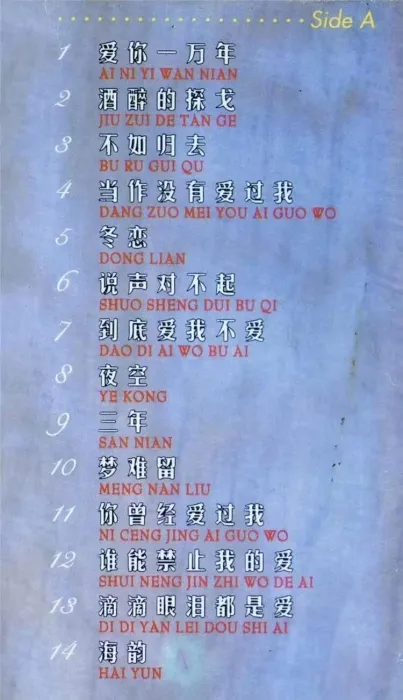 Side A
1 爱你一万年
AI NI YI WAN NIAN
2 酒醉的探戈
JIU ZUI DE TAN GE
3 不如归去
BU RU GUI QU
4 当作没有爱过我
DANG ZUO MEI YOU AI GUO WO
5 冬恋
DONG LIAN
6 说声对不起
SHUO SHENG DUI BU QI
7 到底爱我不爱
DAO DI AI WO BU AI
8 夜空
YE KONG
9 三年
SAN NIAN
10 梦难留
MENG NAN LIU
11 你曾经爱过我
NI CENG JING AI GUO WO
12 谁能禁止我的爱
SHUI NENG JIN ZHI WO DE AI
13 滴滴眼泪都是爱
DI DI YAN LEI DOU SHI AI
14 海韵
HAI YUN